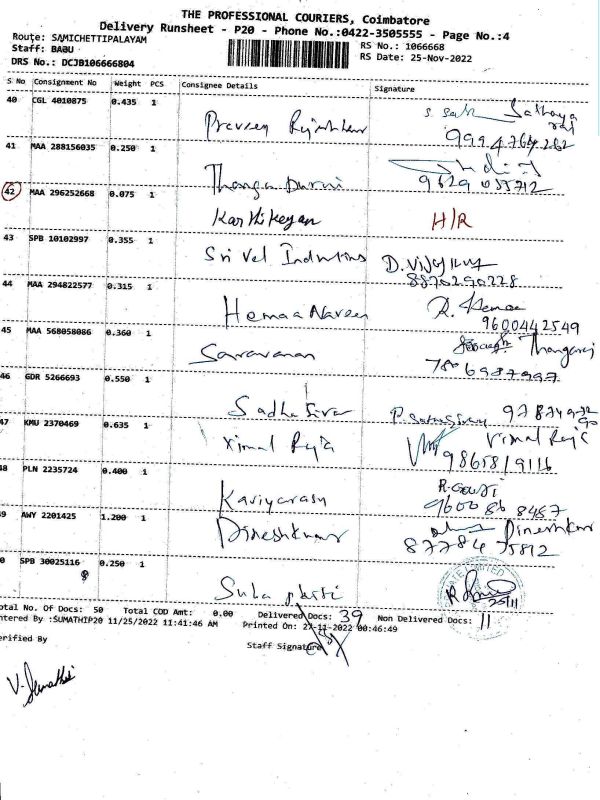 THE PROFESSIONAL COURIERS, Coimbatore
Delivery Runsheet - P20 - Phone No.:0422-3505555 - Page No.:4
Route: SAMICHETTIPALAYAM
Staff: BABU
RS No.: 1066668
RS Date: 25-Nov-2022
DRS No.: DCJB106666804
S No Consignment No Weight PCS Consignee Details Signature
40 CGL 4010875 0.435 1
Praveen
9994764262
41 MAA 288156035 0.250 1
Thanga Durai
9629035712
42 MAA 296252668 0.075 1
Karthikeyan H/R
43 SPB 10102997 0.355 1
Sri Vel Industries D.Vijay
8870290228
44 MAA 294822577 0.315 1
Hemaa Naveen R. Hemaa
9600442549
45 MAA 568058086 0.360 1
Saravanan Thangaraj
46 GDR 5266693 0.550 1
Sadhasivar
47 KMU 2370469 0.635 1
Vimal Raj
48 PLN 2235724 0.400 1
Kaviyarasu R.Gowri
49 AWY 2201425 1.200 1
Dineshkumar Dineshkumar
8778475812
50 SPB 30025116 0.250 1
Suba
25/11
Total No. Of Docs: 50 Total COD Amt: 0.00 Delivered Docs: 39 Non Delivered Docs: 11
Entered By :SUMATHIP20 11/25/2022 11:41:46 AM Printed On: 27-11-2022 00:46:49
Verified By Staff Signature
V. Sumathi